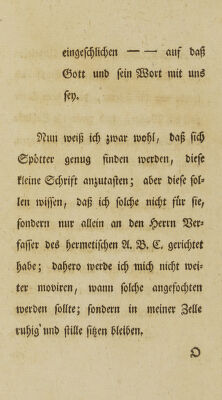 eingeschlichen — — auf daß
Gott und sein Wort mit uns
sey.
Nun weiß ich zwar wohl, daß sich
Spötter genug finden werden, diese
kleine Schrift anzutasten; aber diese sol-
len wissen, daß ich solche nicht für sie,
sondern nur allein an den Herrn Ver-
fasser des hermetischen A. B. C. gerichtet
habe; dahero werde ich mich nicht wei-
ter moviren, wann solche angefochten
werden sollte; sondern in meiner Zelle
ruhig und stille sitzen bleiben.